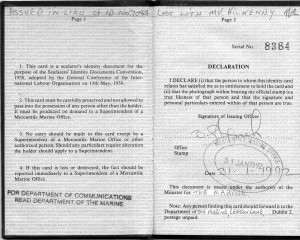 ISSUED IN LIEU OF
LOST WITH MV KILKENNY.
Page 1
1. This card is a seafarer's identity document for the
purpose of the Seafarers' Identity Documents Convention,
1958, adopted by the General Conference of the Inter-
national Labour Organisation on 13th May, 1958.
2. This card must be carefully preserved and not allowed to
pass into the possession of any person other than the holder.
It must be produced on demand to a Superintendent of a
Mercantile Marine Office.
3. No entry should be made to this card except by a
Superintendent of a Mercantile Marine Office or other
authorised person. Should any particulars require alteration
the holder should apply to a Superintendent.
4. If this card is lost or destroyed, the fact should be
reported immediately to a Superintendent of a Mercantile
Marine Office.
FOR DEPARTMENT OF COMMUNICATIONS
READ DEPARTMENT OF THE MARINE
Page 2
Serial No. 8384
DECLARATION
I DECLARE (i) that the person to whom this identity card
relates has satisfied me as to entitlement to hold the card and
(ii) that the photograph within bearing my official stamp is a
true likeness of that person and that the signature and
personal particulars entered within of that person are true.
Signature of Issuing Officer
Office
Stamp
31 JAN 1992
Date 31.1.1992
This document is issued under the authority of the
Minister for THE MARINE
Note: Any person finding this card should forward it to the
Department of THE MARINE, LEESON LANE, Dublin 2,
postage unpaid.